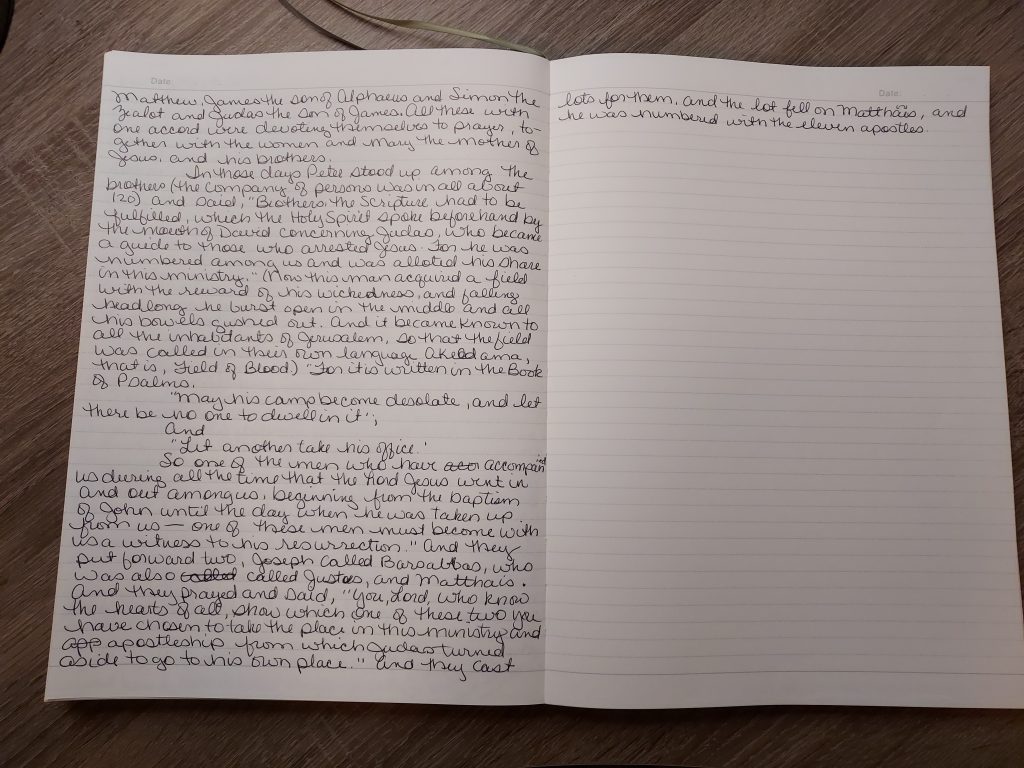 Date:
Matthew, James the son of Alphaeus and Simon the
Zealot and Judas the son of James. All these with
one accord were devoting themselves to prayer, to-
gether with the women and Mary the mother of
Jesus, and his brothers.
In those days Peter stood up among the
brothers (the company of persons was in all about
120) and said, "Brothers, the Scripture had to be
fulfilled, which the Holy Spirit spoke beforehand by
the mouth of David concerning Judas, who became
a guide to those who arrested Jesus. For he was
numbered among us and was alloted his share
in this ministry." (Now this man acquired a field
with the reward of his wickedness, and falling
headlong he burst open in the middle and all
his bowels gushed out. And it became known to
all the inhabitants of Jerusalem, so that the field
was called in their own language Akeldama,
that is, Field of Blood) "For it is written in the Book
of Psalms,
"'May his camp become desolate, and let
there be no one to dwell in it';
And
"'Let another take his office.'
So one of the men who have accompanied
us during all the time that the Lord Jesus went in
and out among us, beginning from the baptism
of John until the day when he was taken up
from us — one of these men must become with
us a witness to his resurrection." And they
put forward two, Joseph called Barsabbas, who
was also called called Justus, and Matthais.
And they prayed and said, "You, Lord, who know
the hearts of all, show which one of these two you
have chosen to take the place in this ministry and
app apostleship from which Judas turned
aside to go to his own place." And they cast
Date:
lots for them, and the lot fell on Matthais, and
he was numbered with the eleven apostles.